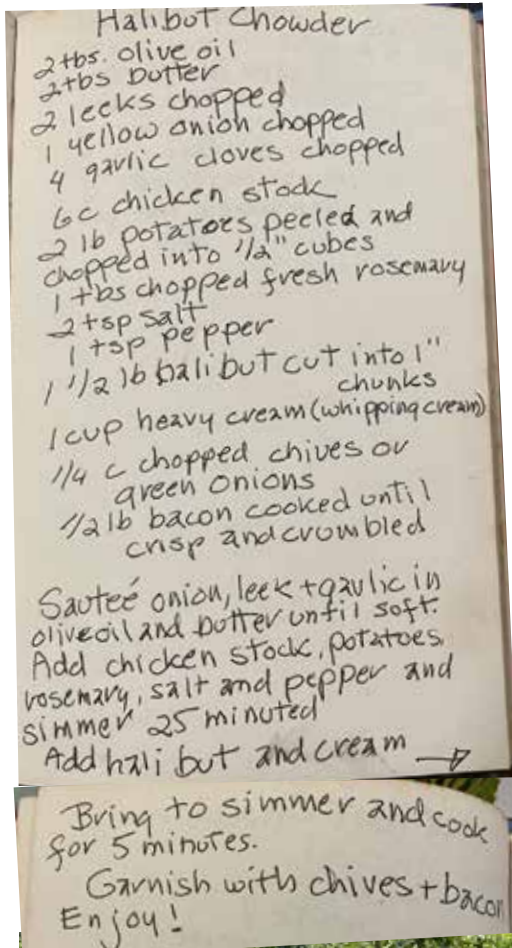 Halibut Chowder
2 tbs. olive oil
2 tbs butter
2 leeks chopped
1 yellow onion chopped
4 garlic cloves chopped
6c chicken stock
2 lb potatoes peeled and
chopped into 1/2" cubes
1 tbs chopped fresh rosemary
2 tsp salt
1 tsp pepper
1 1/2 lb halibut cut into 1"
chunks
1 cup heavy cream (whipping cream)
1/4 c chopped chives or
green onions
1/2 lb bacon cooked until
crisp and crumbled
Sauteé onion, leek + garlic in
olive oil and butter until soft.
Add chicken stock, potatoes,
rosemary, salt and pepper and
simmer 25 minuted
Add halibut and cream →
Bring to simmer and cook
for 5 minutes.
Garnish with chives + bacon
Enjoy!